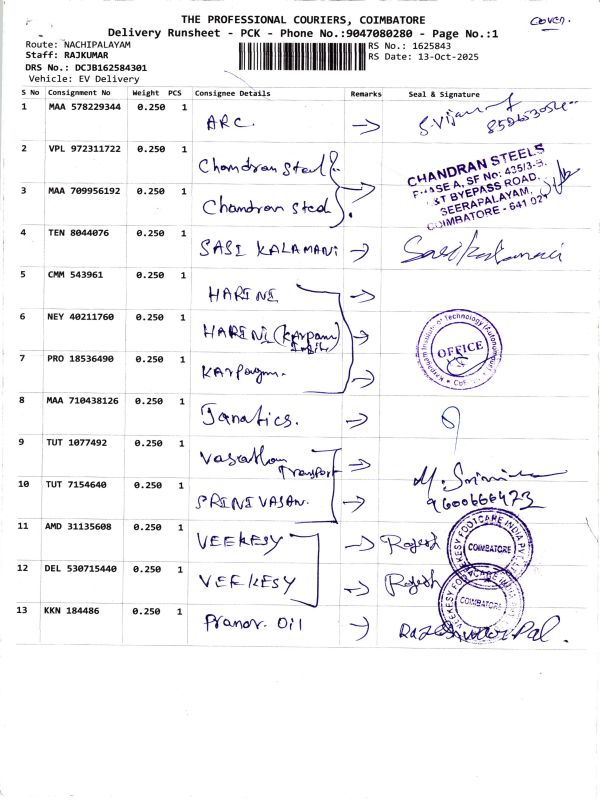 THE PROFESSIONAL COURIERS, COIMBATORE
Cover.
Delivery Runsheet - PCK - Phone No.:9047080280 - Page No.:1
Route: NACHIPALAYAM
RS No.: 1625843
Staff: RAJKUMAR
RS Date: 13-Oct-2025
DRS No.: DCJB162584301
Vehicle: EV Delivery
S No Consignment No Weight PCS Consignee Details Remarks Seal & Signature
1 MAA 578229344 0.250 1 ARC. → S.Vijay
2 VPL 972311722 0.250 1 Chandran Steel
CHANDRAN STEELS
PHASE A, SF No: 435/3-B,
1ST BYEPASS ROAD,
SEERAPALAYAM,
COIMBATORE - 641 021
3 MAA 709956192 0.250 1 Chandran Steel →
4 TEN 8044076 0.250 1 SASI KALAMANI → Sasikalamani
5 CMM 543961 0.250 1 HARINI →
6 NEY 40211760 0.250 1 HARINI (Karpam
Karpagam Institute of Technology (Autonomous)
OFFICE
7 PRO 18536490 0.250 1 Karpagam. →
8 MAA 710438126 0.250 1 Janatics. →
9 TUT 1077492 0.250 1 Vasantham Transport → M. Srinivasan
9600666473
10 TUT 7154640 0.250 1 SRINIVASAN. →
11 AMD 31135608 0.250 1 VEEKESY → Rajesh
VEEKESY FOOTCARE INDIA PVT. LTD
COIMBATORE
12 DEL 530715440 0.250 1 VEEKESY → Rajesh
VEEKESY FOOTCARE INDIA
COIMBATORE
13 KKN 184486 0.250 1 Pranav. Oil → Rajeshwari Pal.